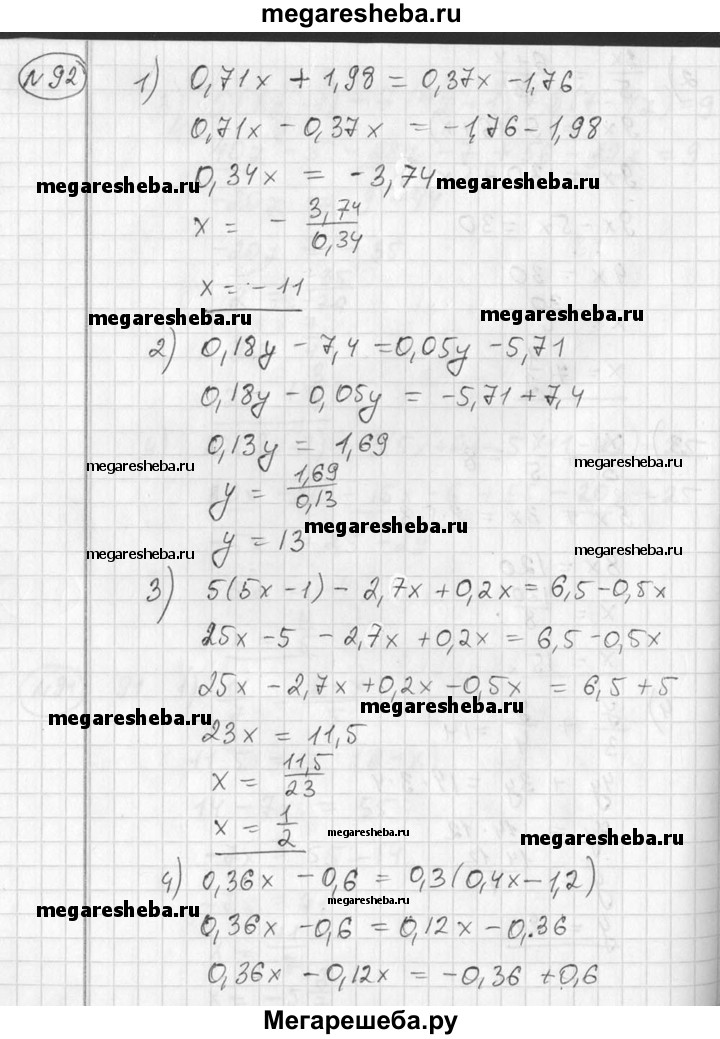 megaresheba.ru
№92 1) 0,71x + 1,98 = 0,37x - 1,76
0,71x - 0,37x = -1,76 - 1,98
megaresheba.ru 0,34x = -3,74 megaresheba.ru
x = - 3,74/0,34
x = -11
megaresheba.ru megaresheba.ru
2) 0,18y - 7,4 = 0,05y - 5,71
0,18y - 0,05y = -5,71 + 7,4
0,13y = 1,69
megaresheba.ru y = 1,69/0,13 megaresheba.ru
megaresheba.ru
megaresheba.ru y = 13 megaresheba.ru
3) 5(5x - 1) - 2,7x + 0,2x = 6,5 - 0,5x
25x - 5 - 2,7x + 0,2x = 6,5 - 0,5x
25x - 2,7x + 0,2x - 0,5x = 6,5 + 5
megaresheba.ru megaresheba.ru
23x = 11,5
x = 11,5/23
x = 1/2 megaresheba.ru megaresheba.ru
4) 0,36x - 0,6 = 0,3(0,4x - 1,2)
megaresheba.ru megaresheba.ru
0,36x - 0,6 = 0,12x - 0.36
0,36x - 0,12x = -0,36 + 0,6
Мегарешеба.ру